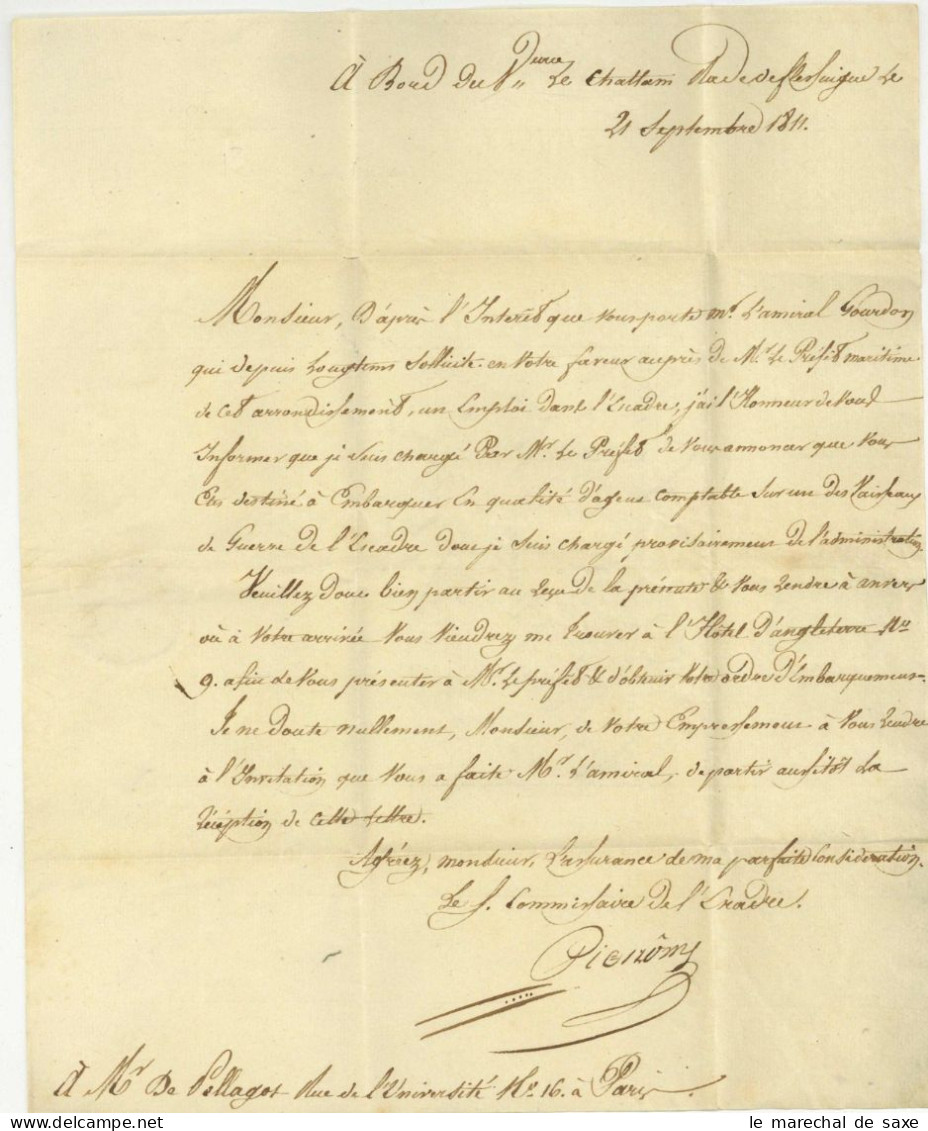 À Bord du Veau Le Chattam Rade de flessingue Le
21 Septembre 1811.
Monsieur, D'après l'Interêt que vous porte mr. L'amiral Gourdon
qui depuis Longtems Sollicite en Votre faveur auprès de Mr. Le Préfét maritime
de cet arrondissement, un Emploi dans l'Escadre, j'ai l'Honneur de Vous
Informer que je suis chargé Par Mr. Le Préfet de Vous annoncer que Vous
Etes destiné à Embarquer En qualité d'agent comptable Sur un des Vaisseaux
de Guerre de l'Escadre dont je suis chargé provisoirement de l'administration
Veuillez donc bien partir au reçu de la présente & Vous rendre à anvers
où à Votre arrivée Vous Viendrez me trouver à l'Hôtel D'angleterre No
9. afin de Vous présenter à Mr. Le préfet & d'obtenir Votre ordre d'Embarquement.
Je ne doute nullement, Monsieur, de Votre Empressement à Vous rendre
à l'Invitation que Vous a faite Mr. L'amiral, de partir aussitôt La
réception de cette Lettre.
Agréez, monsieur, L'assurance de ma parfaite Considération.
Le S. Commissaire De l'Escadre.
À Mr De Pellagot Rue de l'Université No. 16. à Paris.
le marechal de saxe